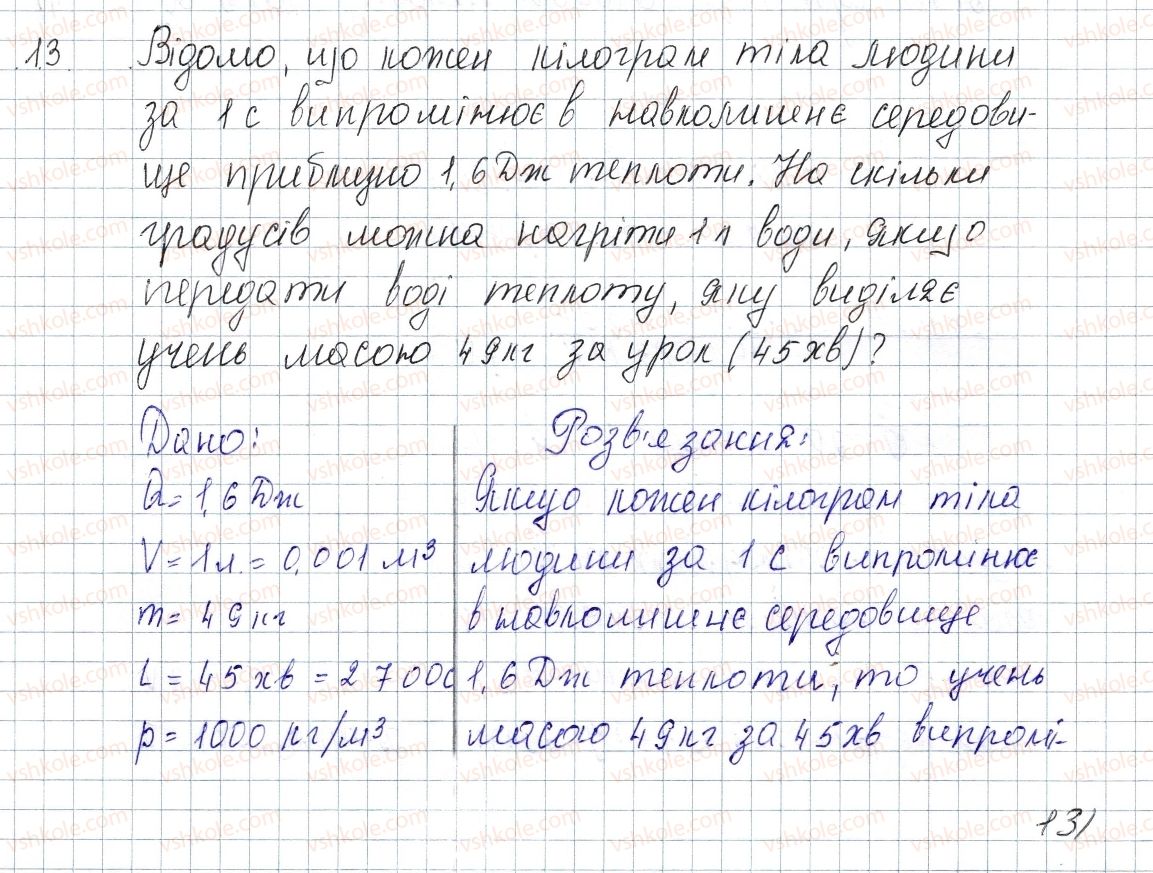 13. Відомо, що кожен кілограм тіла людини
за 1 с випромінює в навколишнє середови-
ще приблизно 1,6 Дж теплоти. На скільки
градусів можна нагріти 1 л води, якщо
передати воді теплоту, яку виділяє
учень масою 49 кг за урок (45 хв)?
Дано:
Q = 1,6 Дж
V = 1 л. = 0,001 м³
m = 49 кг
t = 45 хв = 2700 с
ρ = 1000 кг/м³
Розв'язання:
Якщо кожен кілограм тіла
людини за 1 с випромінює
в навколишнє середовище
1,6 Дж теплоти, то учень
масою 49 кг за 45 хв випромі-
13)